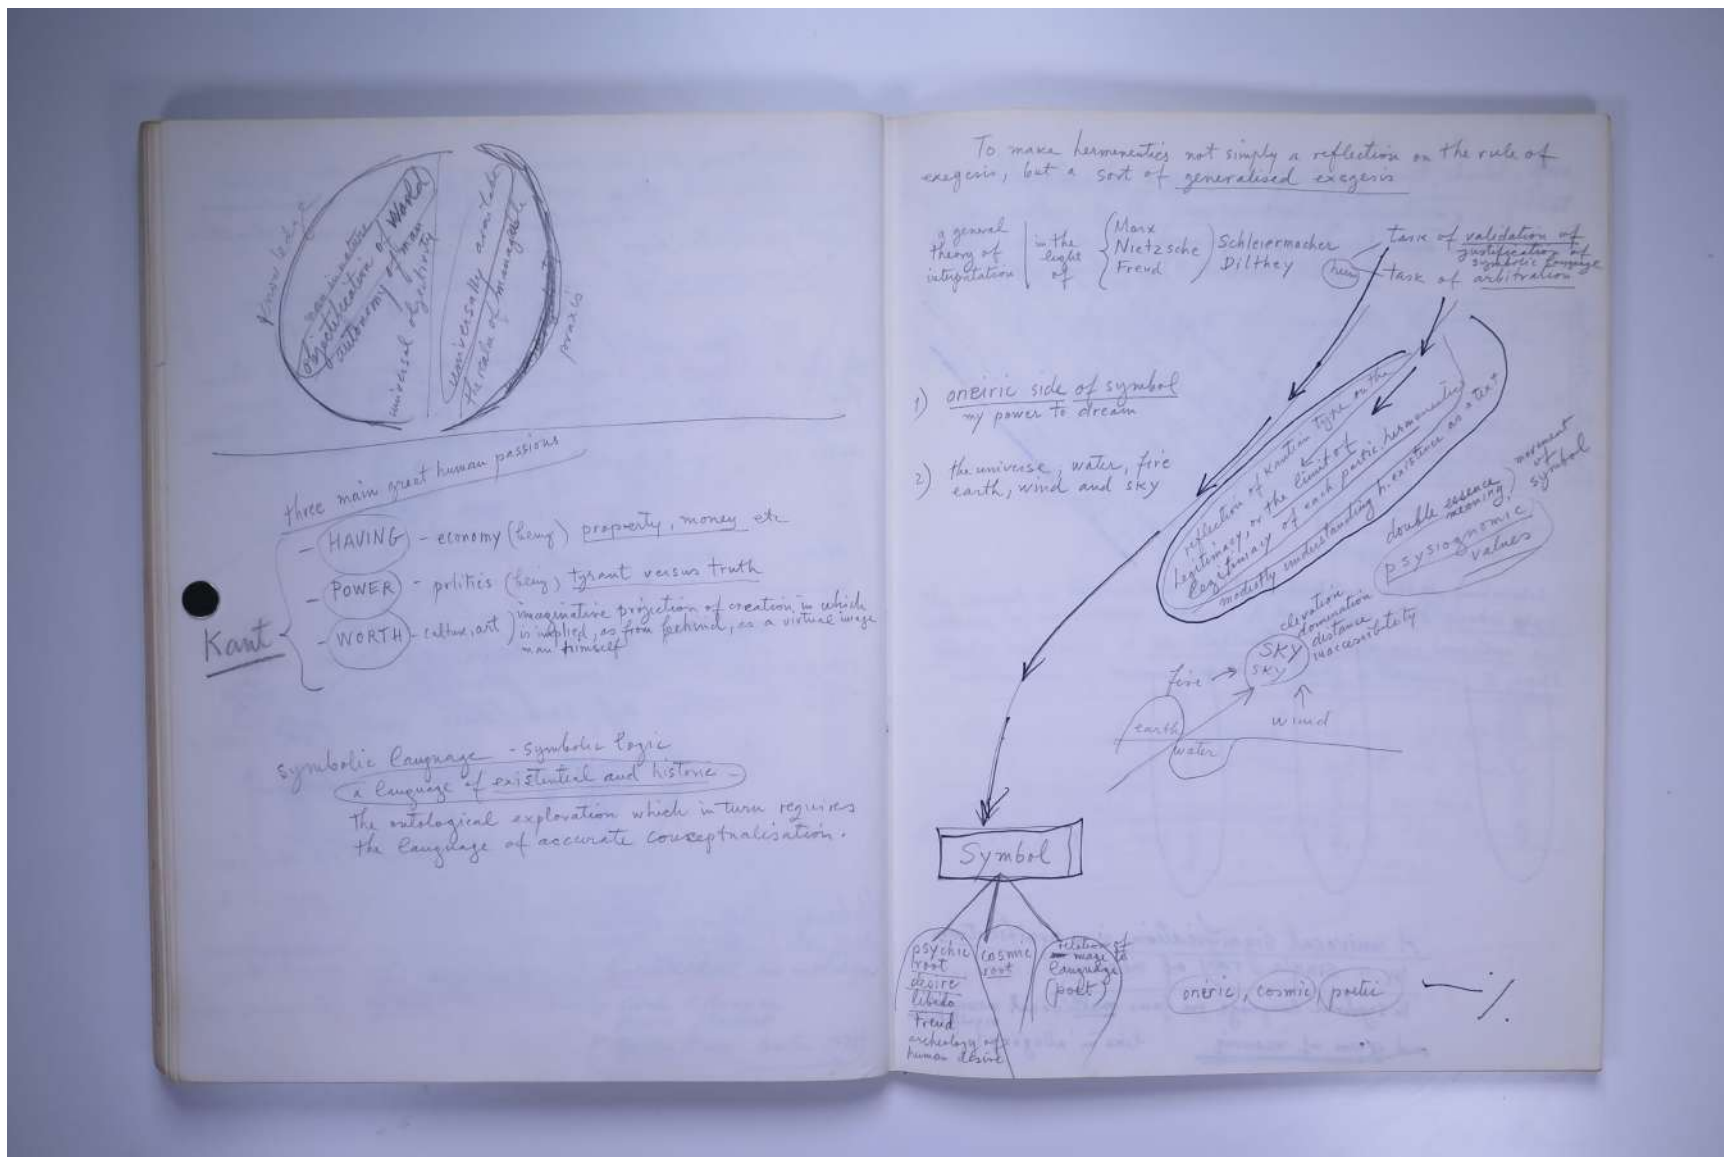 Knowledge
man in nature
objectification of World
autonomy of man
universal objectivity
universally available
the realm of manageable
praxis
three main great human passions
Kant
- HAVING - economy (being) property, money etc
- POWER - politics (being) tyrant versus truth
- WORTH - culture, art) imaginative projection of creation, in which
is implied, as from behind, as a virtual image
man himself
symbolic language - symbolic logic
a language of existential and historic -
the ontological exploration which in turn requires
the language of accurate conceptualisation.
To make hermeneutics not simply a reflection on the rule of
exegesis, but a sort of generalised exegesis
a general
theory of
interpretation
in the
light
of
Marx
Nietzsche
Freud
Schleiermacher
Dilthey
task of validation of
justification of
symbolic language
task of arbitration
1) oneiric side of symbol
my power to dream
2) the universe, water, fire
earth, wind and sky
reflection of Kantian type on the
legitimacy, or the limit of
legitimacy of each partic. hermeneutic
modestly understanding h. existence as a text
double essence
meaning,
movement
of
symbol
psysiognomic
values
elevation
domination
distance
inaccessibility
SKY
SKY
fire
wind
earth
water
Symbol
psychic
root
desire
libido
Freud
archeology of
human desire
cosmic
root
relation of
image to
language
(poet)
oneric, cosmic, poetic